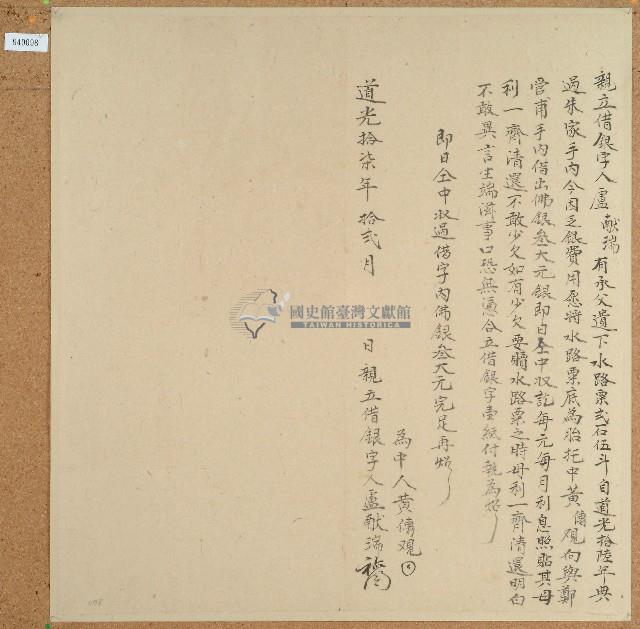 親立借銀字人盧献瑞有承父遺下水路粟弍石伍斗自道光拾陸年典
過朱家手内今因乏銀費用愿將水路粟底為胎托中黄傳覌向與鄭
官甫手内借出佛銀叁大元銀即日仝中収訖每元每月利息照貼其母
利一齊清還不敢少欠如有少欠要贖水路粟之時母利一齊清還明白
不敢異言生端滋事口恐無憑合立借銀字壹紙付執為炤
即日仝中収過借字内佛銀叁大元完足再炤
為中人黄傳覌
道光拾柒年拾弍月 日親立借銀字人盧献瑞
國史館臺灣文獻館
TAIWAN HISTORICA
940098